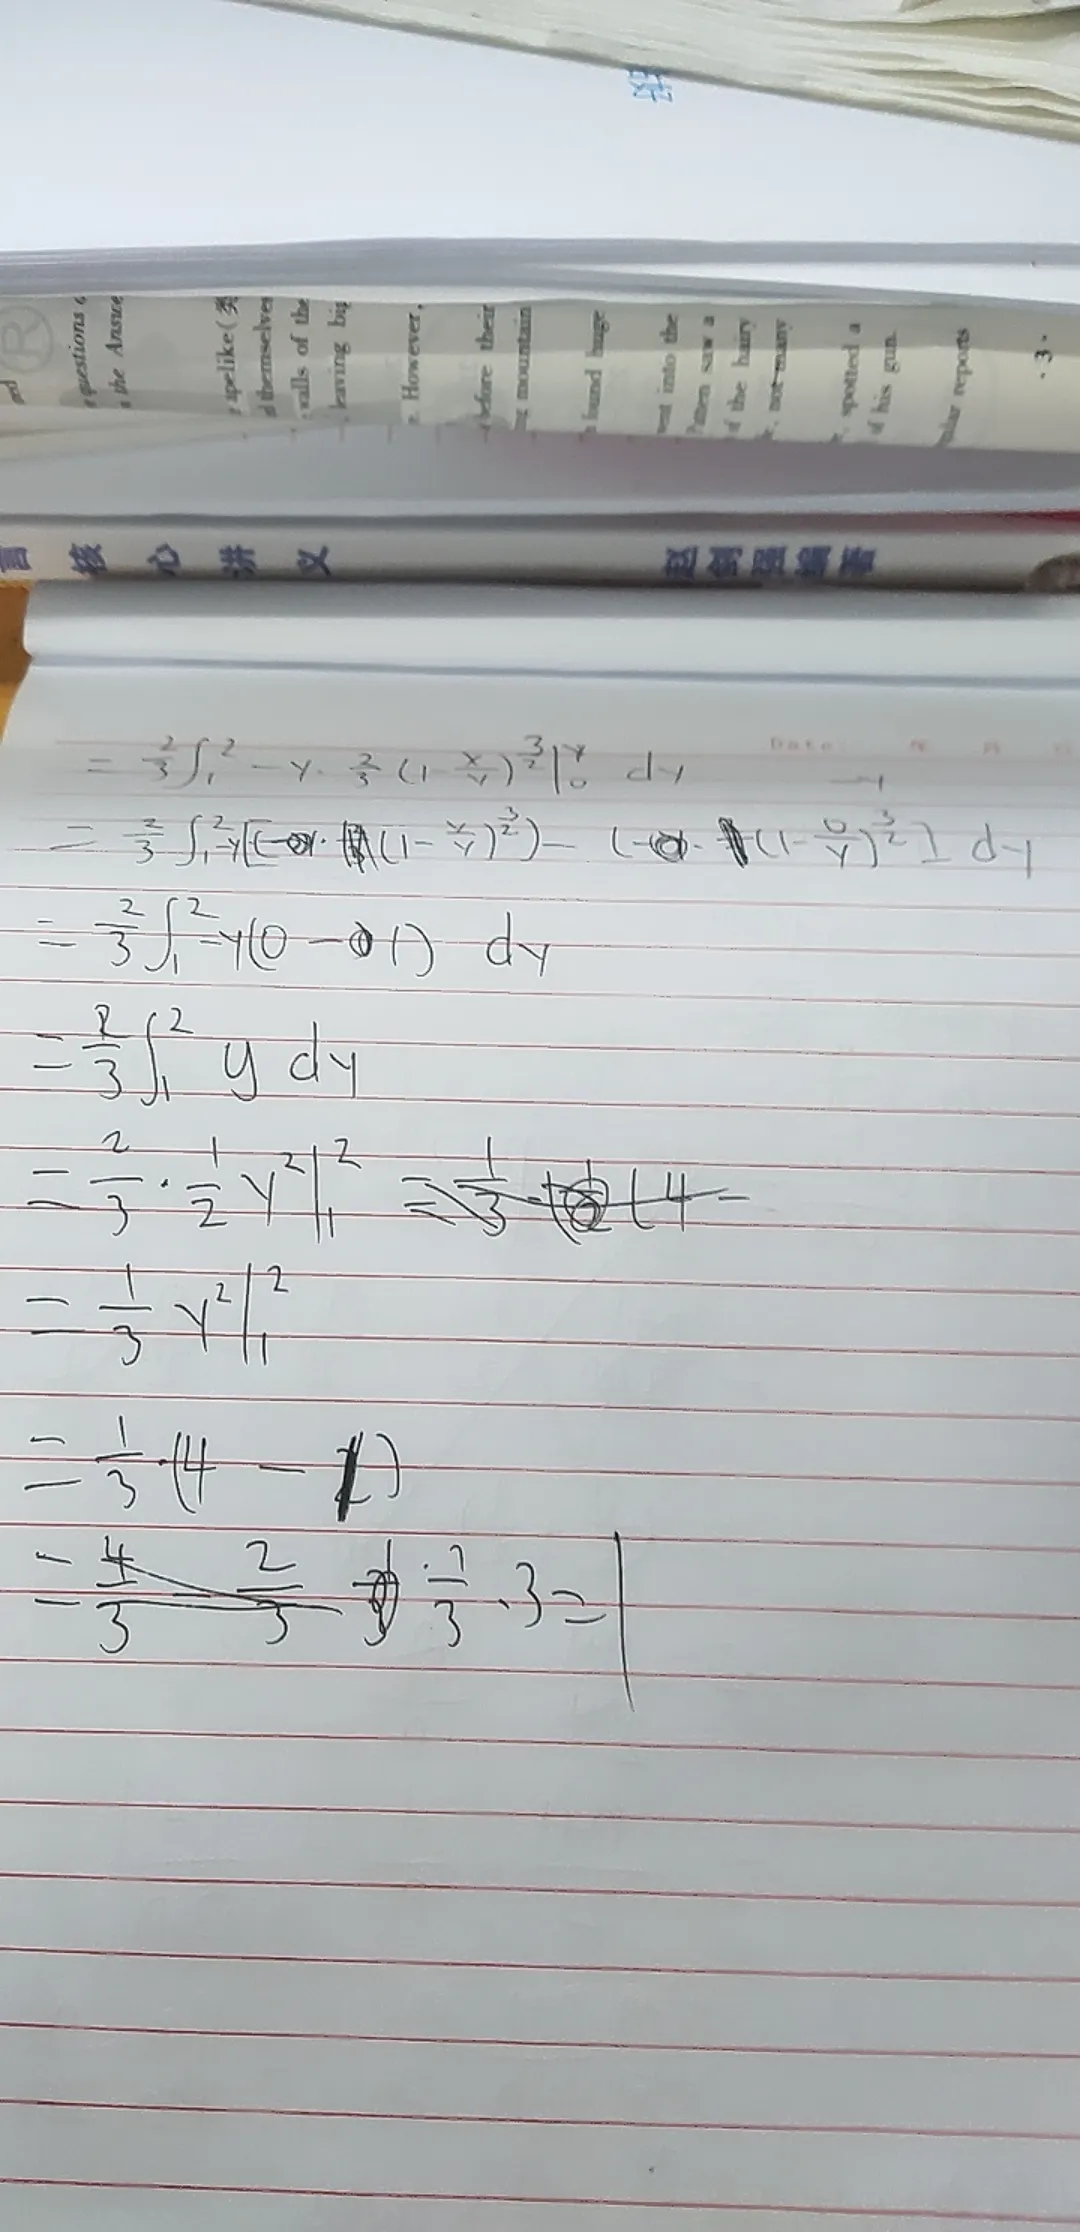 弦
R
questions
the Answe
apelike (类
d themselves
walls of the
leaving big
However,
before their
mountain
found huge
went into the
Patten saw a
of the hairy
not many
spotted a
of his gun.
reports
· 3 ·
言 核 心 讲 义 赵剑强编著
Date:
= 2/3 ∫₁² -y · 2/3 (1 - x/y)^(3/2) |₀^y dy
= 2/3 ∫₁² -y[(1 - y/y)^(3/2)) - ((1 - 0/y)^(3/2)] dy
= 2/3 ∫₁² -y(0 - 1) dy
= 2/3 ∫₁² y dy
= 2/3 · 1/2 y² |₁² = 1/3 (4 -
= 1/3 y² |₁²
= 1/3 · (4 - 1)
= 4/3 - 2/3 1/3 · 3 = 1